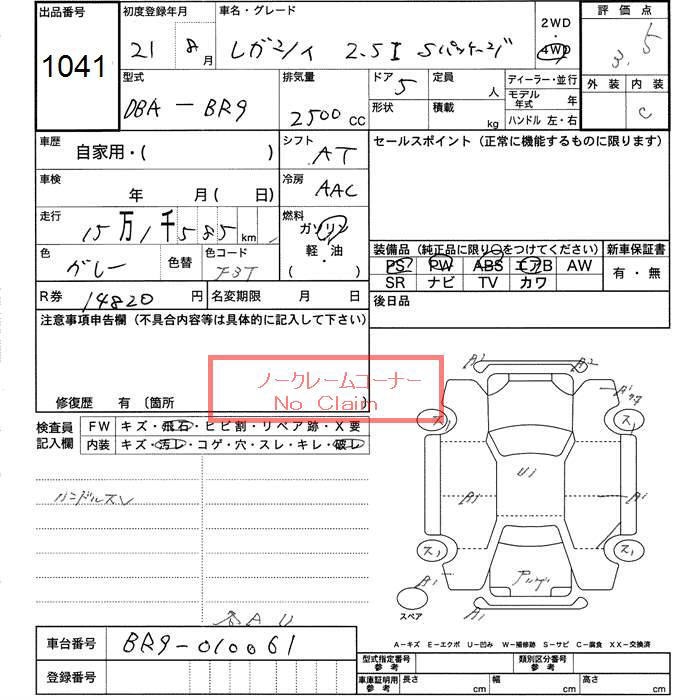 出品番号
1041
初度登録年月
21 8月
車名・グレード
レガシィ 2.5I Sパッケージ
2WD
4WD
評価点
3.5
型式
DBA-BR9
排気量
2500 CC
ドア
5
定員
人
形状
積載
kg
ディーラー・並行
モデル年式 年
ハンドル 左・右
外装 内装
C
車歴
自家用・( )
シフト
AT
セールスポイント(正常に機能するものに限ります)
車検
年 月( 日)
冷房
AAC
走行
15万1千585km
燃料
ガソリン
軽・油
( )
色
グレー
色替
色コード
装備品(純正品に限り○をつけてください)
新車保証書
PS PW ABS エアB AW
SR ナビ TV カワ
有・無
R券 14820円
名変期限 月 日
後日品
注意事項申告欄(不具合内容等は具体的に記入して下さい)
ノークレームコーナー
No Claim
修復歴 有 〔箇所
検査員
記入欄
FW キズ・飛石・ヒビ割・リペア跡・X要
内装 キズ・汚レ・コゲ・穴・スレ・キレ・破レ
ハンドルスレ
A2 A2
A1
ス1 ス1
U1
A1 A1
ス1 ス1
A1
A1
スペア
A-キズ E-エクボ U-凹み W-補修跡 S-サビ C-腐食 XX-交換済
車台番号 BR9-010061
登録番号
型式指定番号
参考
類別区分番号
参考
車庫証明用
参考
長さ cm 幅 cm 高さ cm